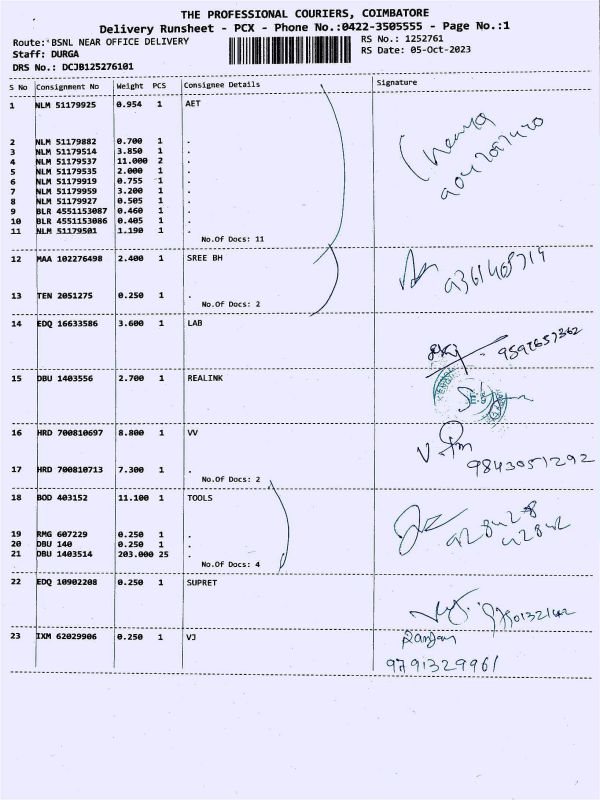 THE PROFESSIONAL COURIERS, COIMBATORE
Delivery Runsheet - PCX - Phone No.:0422-3505555 - Page No.:1
Route: BSNL NEAR OFFICE DELIVERY RS No.: 1252761
Staff: DURGA RS Date: 05-Oct-2023
DRS No.: DCJB125276101
S No Consignment No Weight PCS Consignee Details Signature
1 NLM 51179925 0.954 1 AET
2 NLM 51179882 0.700 1 .
3 NLM 51179514 3.850 1 .
4 NLM 51179537 11.000 2 .
5 NLM 51179535 2.000 1 .
6 NLM 51179919 0.755 1 .
7 NLM 51179959 3.200 1 .
8 NLM 51179927 0.505 1 .
9 BLR 4551153087 0.460 1 .
10 BLR 4551153086 0.405 1 .
11 NLM 51179501 1.190 1 .
No.Of Docs: 11
12 MAA 102276498 2.400 1 SREE BH
13 TEN 2051275 0.250 1 .
No.Of Docs: 2
14 EDQ 16633586 3.600 1 LAB
9597657362
15 DBU 1403556 2.700 1 REALINK
16 HRD 700810697 8.800 1 VV
9843051292
17 HRD 700810713 7.300 1 .
No.Of Docs: 2
18 BOD 403152 11.100 1 TOOLS
19 RMG 607229 0.250 1 .
20 DBU 140 0.250 1 .
21 DBU 1403514 203.000 25 .
No.Of Docs: 4
22 EDQ 10902208 0.250 1 SUPRET
23 IXM 62029906 0.250 1 VJ
Ranjan
9791329961